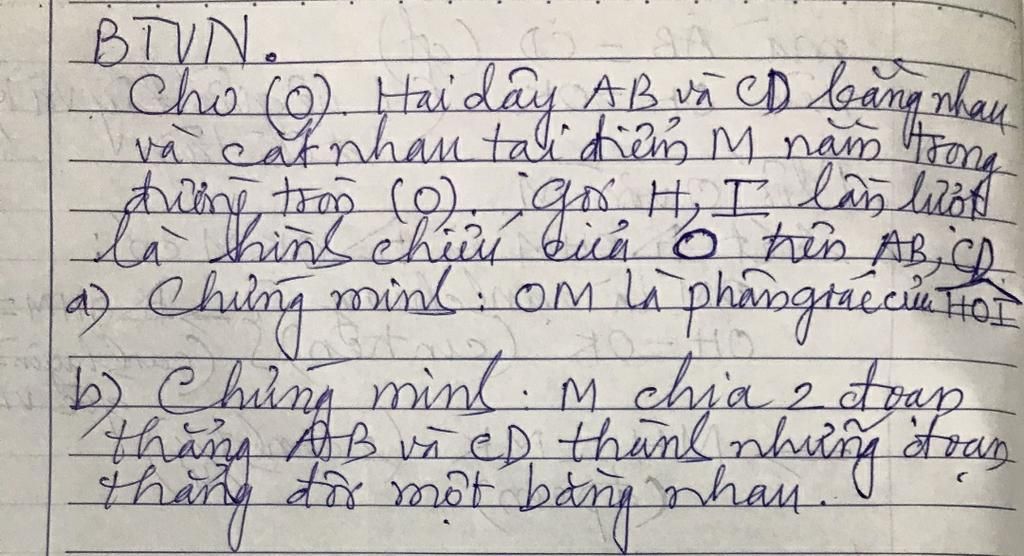 BTVN.
Cho (O). Hai dây AB và CD bằng nhau
và cắt nhau tại điểm M nằm trong
đường tròn (O). Gọi H, I lần lượt
là hình chiếu của O trên AB, CD
a) Chứng minh: OM là phân giác của HOI
b) Chứng minh: M chia 2 đoạn
thẳng AB và CD thành những đoạn
thẳng đôi một bằng nhau.